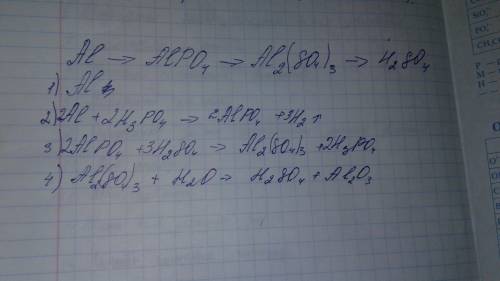 Al → AlPO4 → Al2(SO4)3 → H2SO4
1) Al
2) 2Al + 2H3PO4 → 2AlPO4 + 3H2↑
3) 2AlPO4 + 3H2SO4 → Al2(SO4)3 + 2H3PO4
4) Al2(SO)3 + H2O → H2SO4 + Al2O3